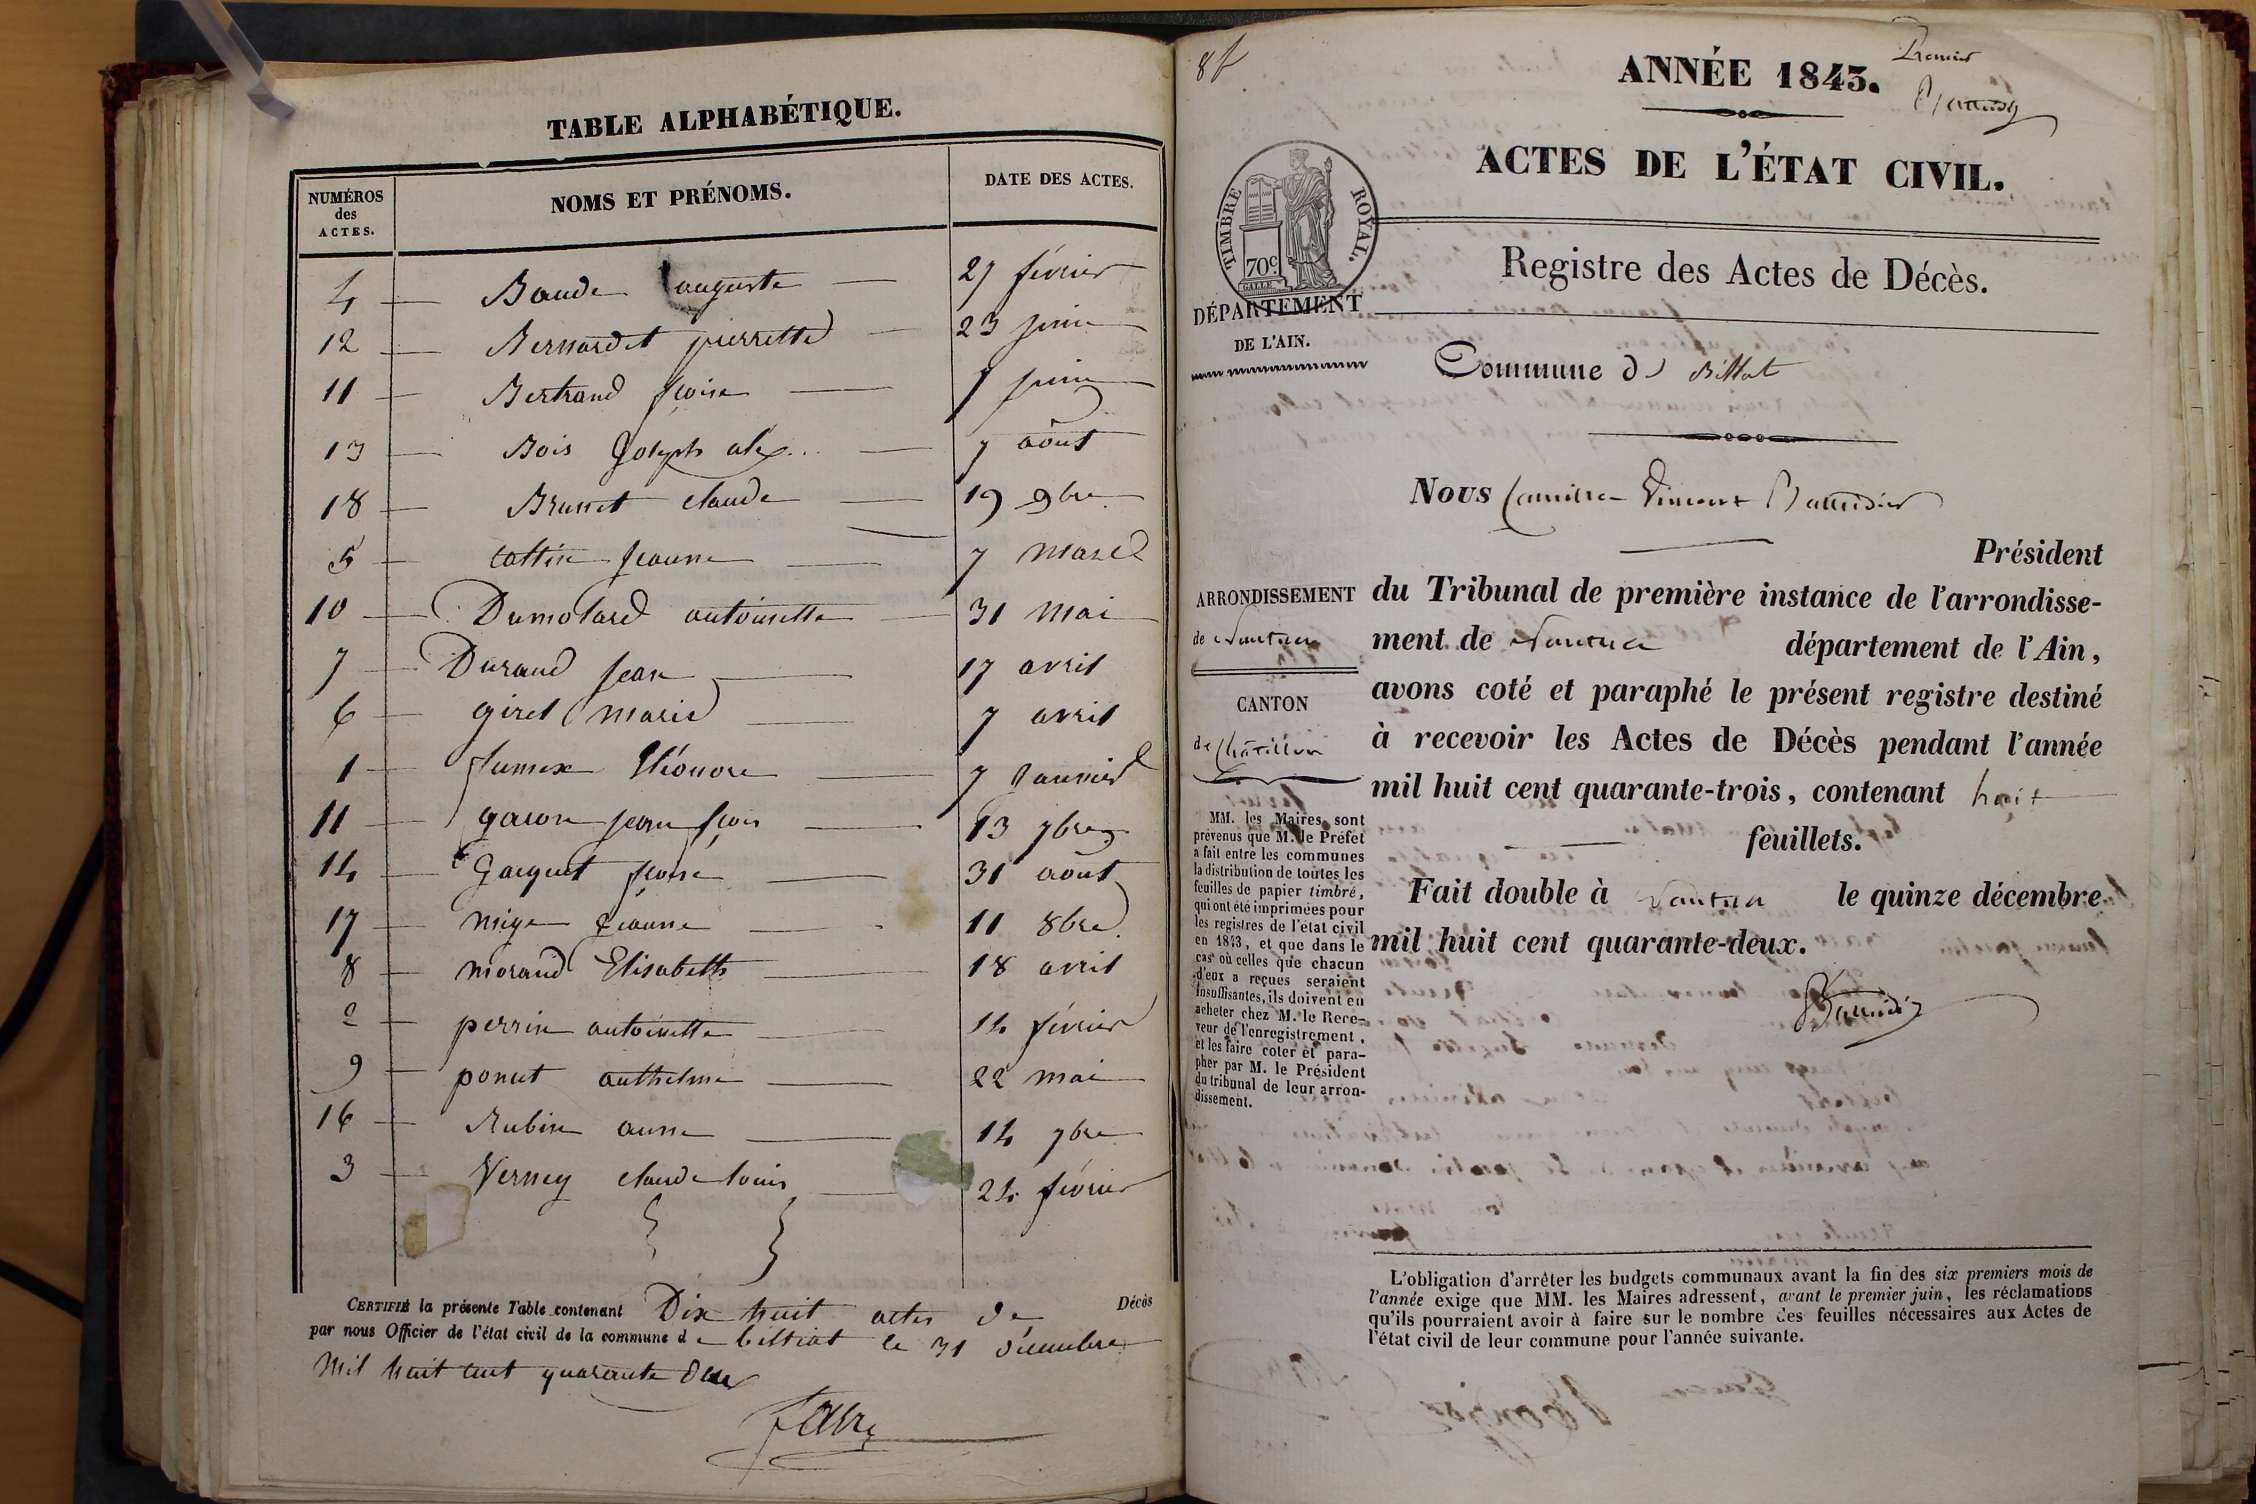 TABLE ALPHABÉTIQUE.
NUMÉROS
des
ACTES.
NOMS ET PRÉNOMS.
DATE DES ACTES.
4 Baude auguste 27 février
12 Bernardet pierrette 23 juin
11 Bertrand froise juin
13 Bois Joseph alex.. 7 août
18 Brunet claude 19 9bre
5 Cottin jeanne 7 mars
10 Dumolard antoinette 31 mai
7 Durand jean 17 avril
6 girel marie 7 avril
1 Eléonore 7 Janvier
11 gacon jean frois 13 7bre
14 Jacquet froise 31 août
17 mige jeanne 11 8bre
8 moraud Elisabeth 18 avril
2 perrin antoinette 14 février
9 ponut anthelme 22 mai
16 Rubin anne 14 7bre
3 Verney claude louis 24 février
CERTIFIÉ la présente Table contenant Dix huit actes de Décès
par nous Officier de l'état civil de la commune de billiat le 31 décembre
mil huit cent quarante deux
Favre
8f
Premier
ANNÉE 1843.
ACTES DE L'ÉTAT CIVIL.
TIMBRE ROYAL.
70c
GALLE
DÉPARTEMENT
DE L'AIN.
Registre des Actes de Décès.
Commune de Billiat
Nous Camille Vincent
Président
ARRONDISSEMENT
de Nantua
CANTON
de Châtillon
du Tribunal de première instance de l'arrondisse-
ment de Nantua département de l'Ain,
avons coté et paraphé le présent registre destiné
à recevoir les Actes de Décès pendant l'année
mil huit cent quarante-trois, contenant huit
feuillets.
Fait double à Nantua le quinze décembre
mil huit cent quarante-deux.
MM. les Maires sont
prévenus que M. le Préfet
a fait entre les communes
la distribution de toutes les
feuilles de papier timbré,
qui ont été imprimées pour
les registres de l'état civil
en 1843, et que dans le
cas où celles que chacun
d'eux a reçues seraient
insuffisantes, ils doivent en
acheter chez M. le Rece-
veur de l'enregistrement,
et les faire coter et para-
pher par M. le Président
du tribunal de leur arron-
dissement.
L'obligation d'arrêter les budgets communaux avant la fin des six premiers mois de
l'année exige que MM. les Maires adressent, avant le premier juin, les réclamations
qu'ils pourraient avoir à faire sur le nombre des feuilles nécessaires aux Actes de
l'état civil de leur commune pour l'année suivante.